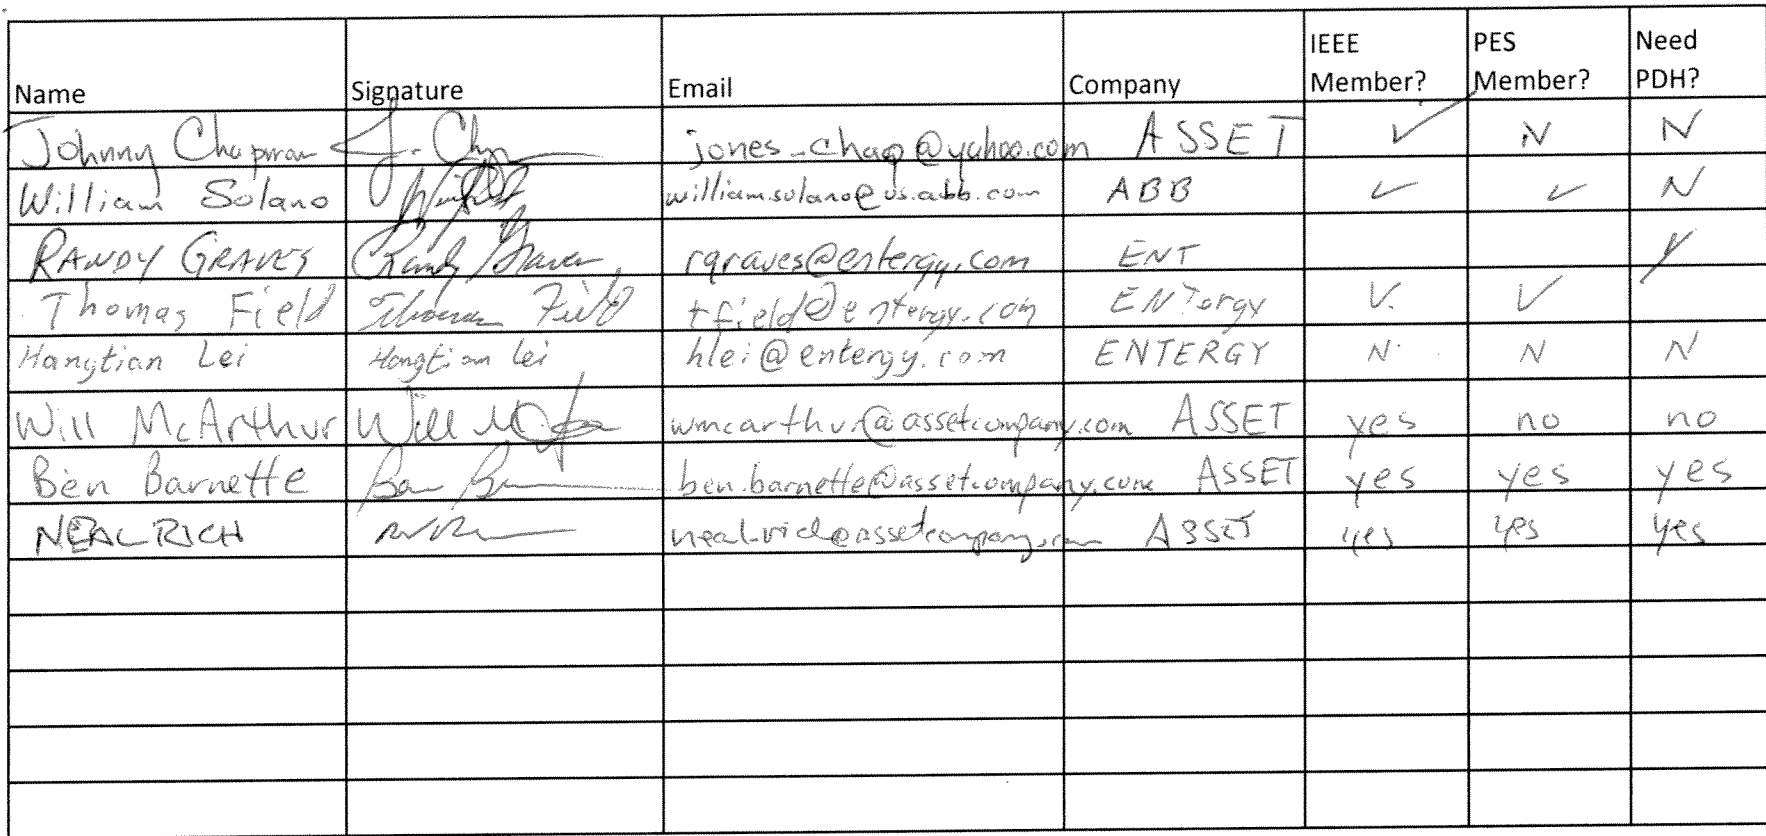 Name Signature Email Company IEEE Member? PES Member? Need PDH?
Johnny Chapman J. Ch jones_chap@yahoo.com ASSET ✓ N N
William Solano william.solano@us.abb.com ABB ✓ ✓ N
RANDY GRAVES Randy Graves rgraves@entergy.com ENT Y
Thomas Field Thomas Field tfield@entergy.com ENTergy ✓ ✓
Hangtian Lei Hangtian Lei hlei@entergy.com ENTERGY N N N
Will McArthur Will wmcarthur@assetcompany.com ASSET yes no no
Ben Barnette Ben B ben.barnette@assetcompany.com ASSET yes yes yes
NEAL RICH neal.rich@assetcompany.com ASSET yes yes yes